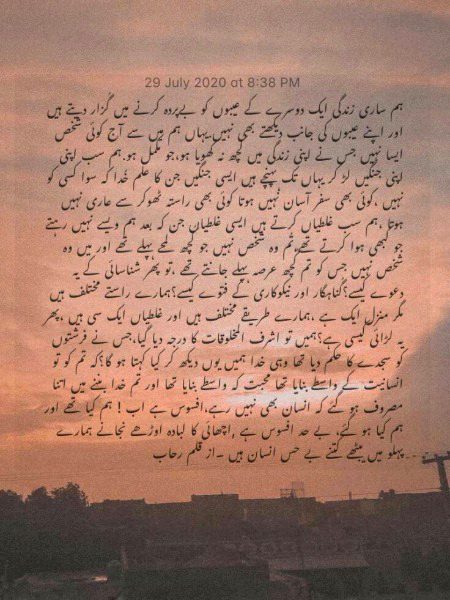 29 July 2020 at 8:38 PM
ہم ساری زندگی ایک دوسرے کے عیبوں کو بےپردہ کرنے میں گزار دیتے ہیں
اور اپنے عیبوں کی جانب دیکھتے بھی نہیں یہاں ہم میں سے آج کوئی شخص
ایسا نہیں جس نے اپنی زندگی میں کچھ نہ کھویا ہو،جو مکمل ہو.ہم سب اپنی
اپنی جنگیں لڑ کر یہاں تک پہنچے ہیں ایسی جنگیں جن کا علم خدا کہ سوا کسی کو
نہیں ،کوئی بھی سفر آسان نہیں ہوتا کوئی بھی راستہ ٹھوکر سے عاری نہیں
ہوتا ،ہم سب غلطیاں کرتے ہیں ایسی غلطیاں جن کہ بعد ہم ویسے نہیں رہتے
جو کبھی ہوا کرتے تھے،تم وہ شخص نہیں جو کچھ لمحے پہلے تھے اور میں وہ
شخص نہیں جس کو تم کچھ عرصہ پہلے جانتے تھے ،تو پھر شناسائی کے یہ
دعوے کیسے؟گناہگار اور نیکوکاری کے فتوے کیسے؟ہمارے راستے مختلف ہیں
مگر منزل ایک ہے ،ہمارے طریقے مختلف ہیں اور غلطیاں ایک سی ہیں ،پھر
یہ لڑائی کیسی ہے؟ہمیں تو اشرف المخلوقات کا درجہ دیا گیا،جس نے فرشتوں
کو سجدے کا حکم دیا تھا وہی خدا ہمیں یوں دیکھ کر کیا کہتا ہو گا؟کہ تم کو تو
انسانیت کے واسطے بنایا تھا محبت کہ واسطے بنایا تھا اور تم خدا بننے میں اتنا
مصروف ہو گئے کہ انسان بھی نہیں رہے،افسوس ہے اب ! ہم کیا تھے اور
ہم کیا ہو گئے، بے حد افسوس ہے ,اچھائی کا لبادہ اوڑھے نجانے ہمارے
پہلو میں بیٹھے کتنے بے حس انسان ہیں ۔از قلم رحاب